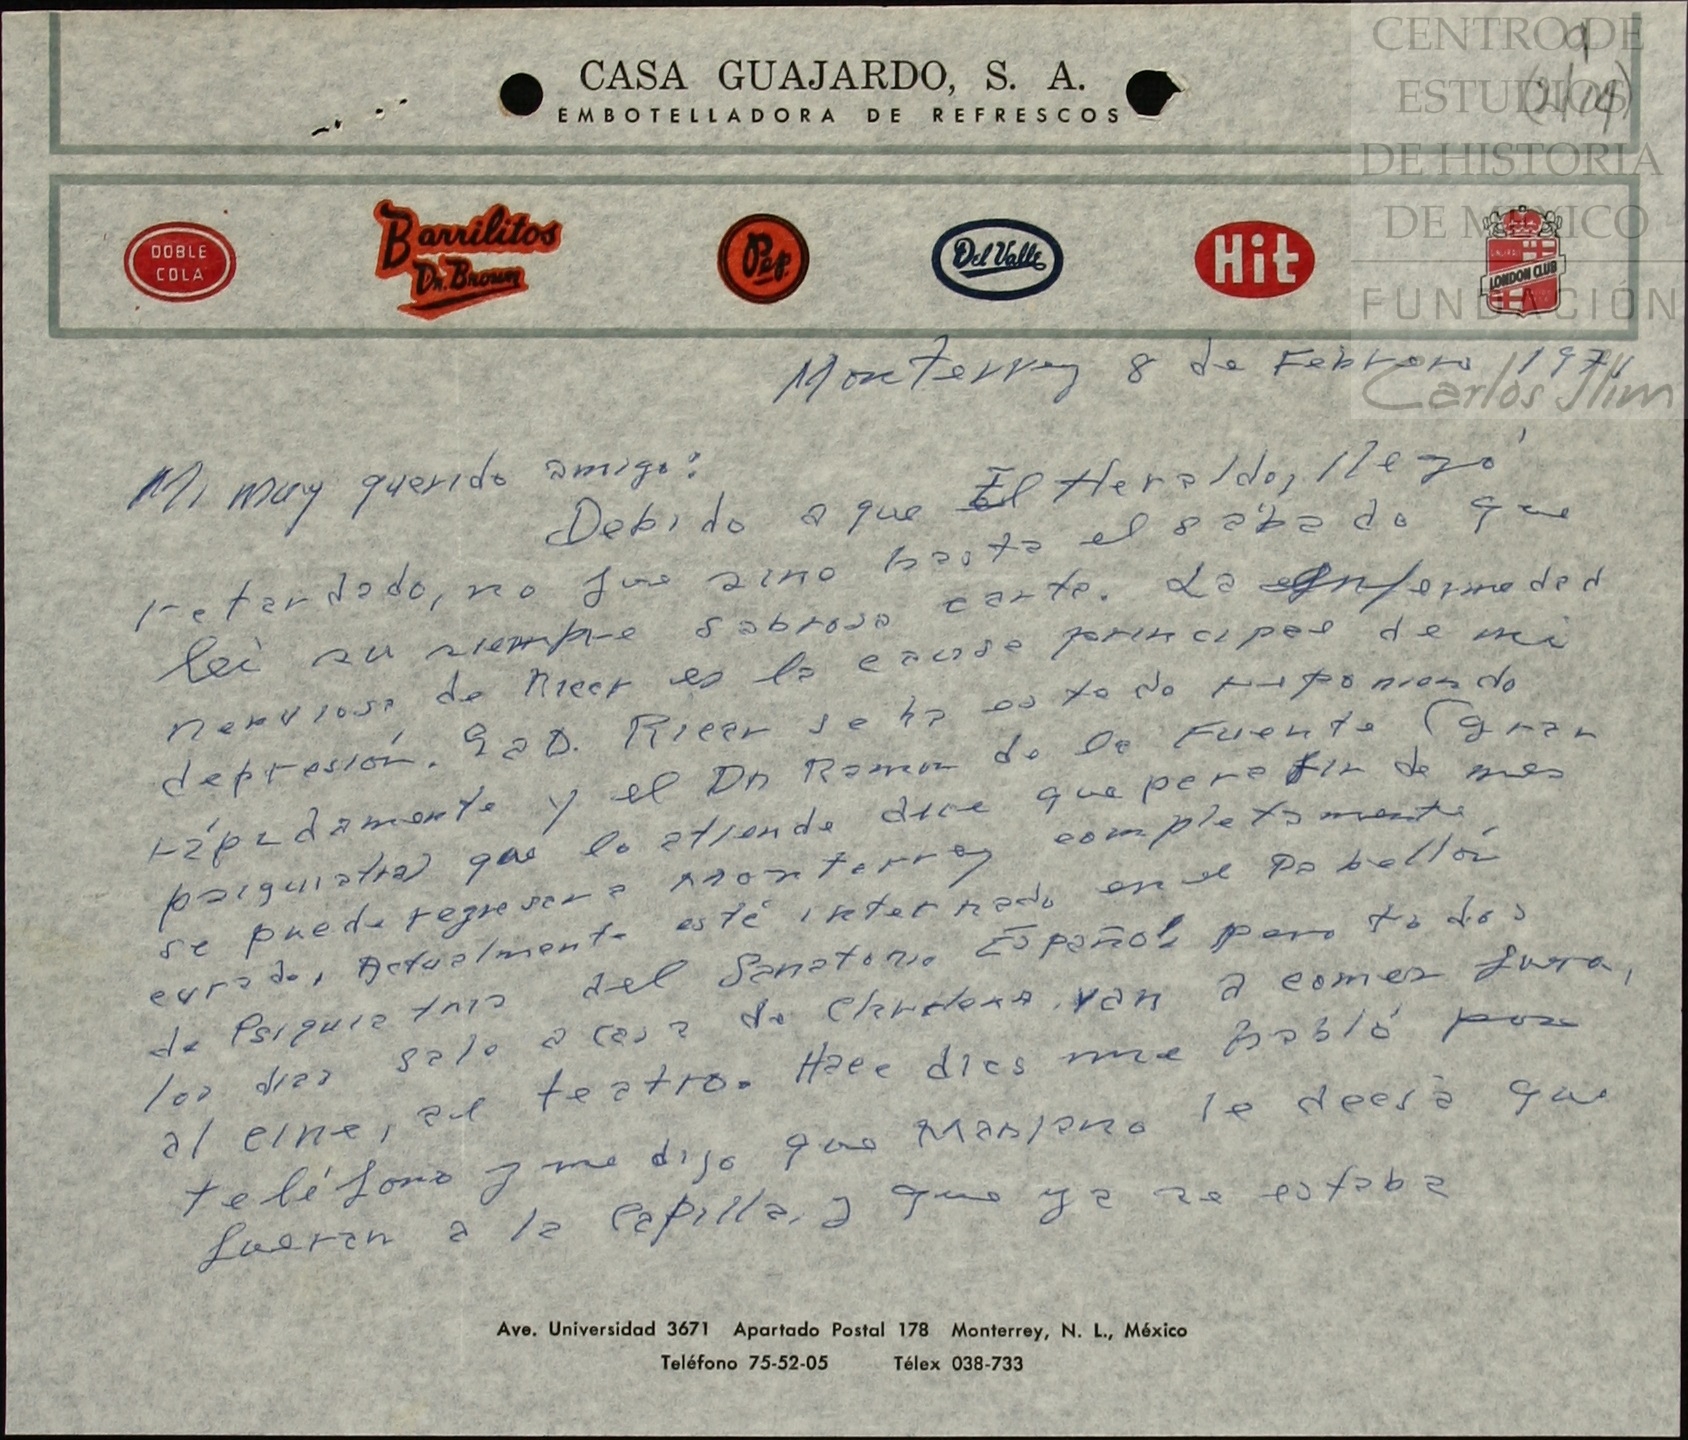 CENTRO DE
ESTUDIOS
DE HISTORIA
DE MÉXICO
FUNDACIÓN
Carlos Slim
(2/14)
CASA GUAJARDO, S. A.
EMBOTELLADORA DE REFRESCOS
DOBLE COLA
Barrilitos Dr. Brown
Pep
Del Valle
Hit
LONDON CLUB
Monterrey 8 de Febrero 1971
Mi muy querido amigo:
Debido a que El Heraldo, llegó
retardado, no fue sino hasta el sábado que
leí su siempre sabrosa carta. La enfermedad
nerviosa de Ricar es la causa principal de mi
depresión. GaD. Ricar se ha estado reponiendo
rápidamente y el Dr Ramon de la Fuente (gran
psiquiatra) que lo atiende dice que para fin de mes
se puede regresar a Monterrey completamente
curado, Actualmente esté internado en el Pabellón
de Psiquiatria del Sanatorio Español pero todos
los dias sale a casa de van a comer fuera,
al cine, al teatro. Hace dias me habló por
teléfono y me dijo que Mariano le decía que
fueran a la Capilla, y que ya se estaba
Ave. Universidad 3671 Apartado Postal 178 Monterrey, N. L., México
Teléfono 75-52-05 Télex 038-733